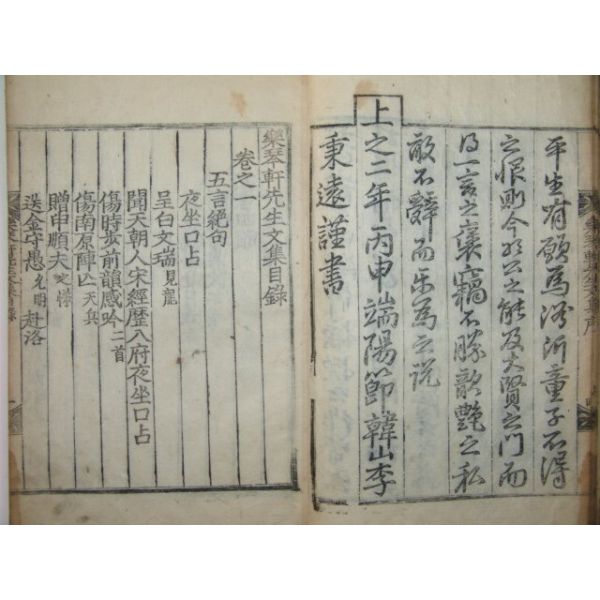 平生有願爲浴沂童子不得
之恨則今於公之能及大賢之門而
得一言之褒竊不勝歆艶之私
敢不辭而樂爲之說
上之二年丙申端陽節韓山李
秉遠謹書
樂琴軒先生文集目錄
卷之一
五言絶句
夜坐口占
呈白文瑞見龍
聞天朝人宋經歷八府夜坐口占
傷時步前韻感吟二首
傷南原陣亡天兵
贈申順夫之悌
送金守愚光明赴洛